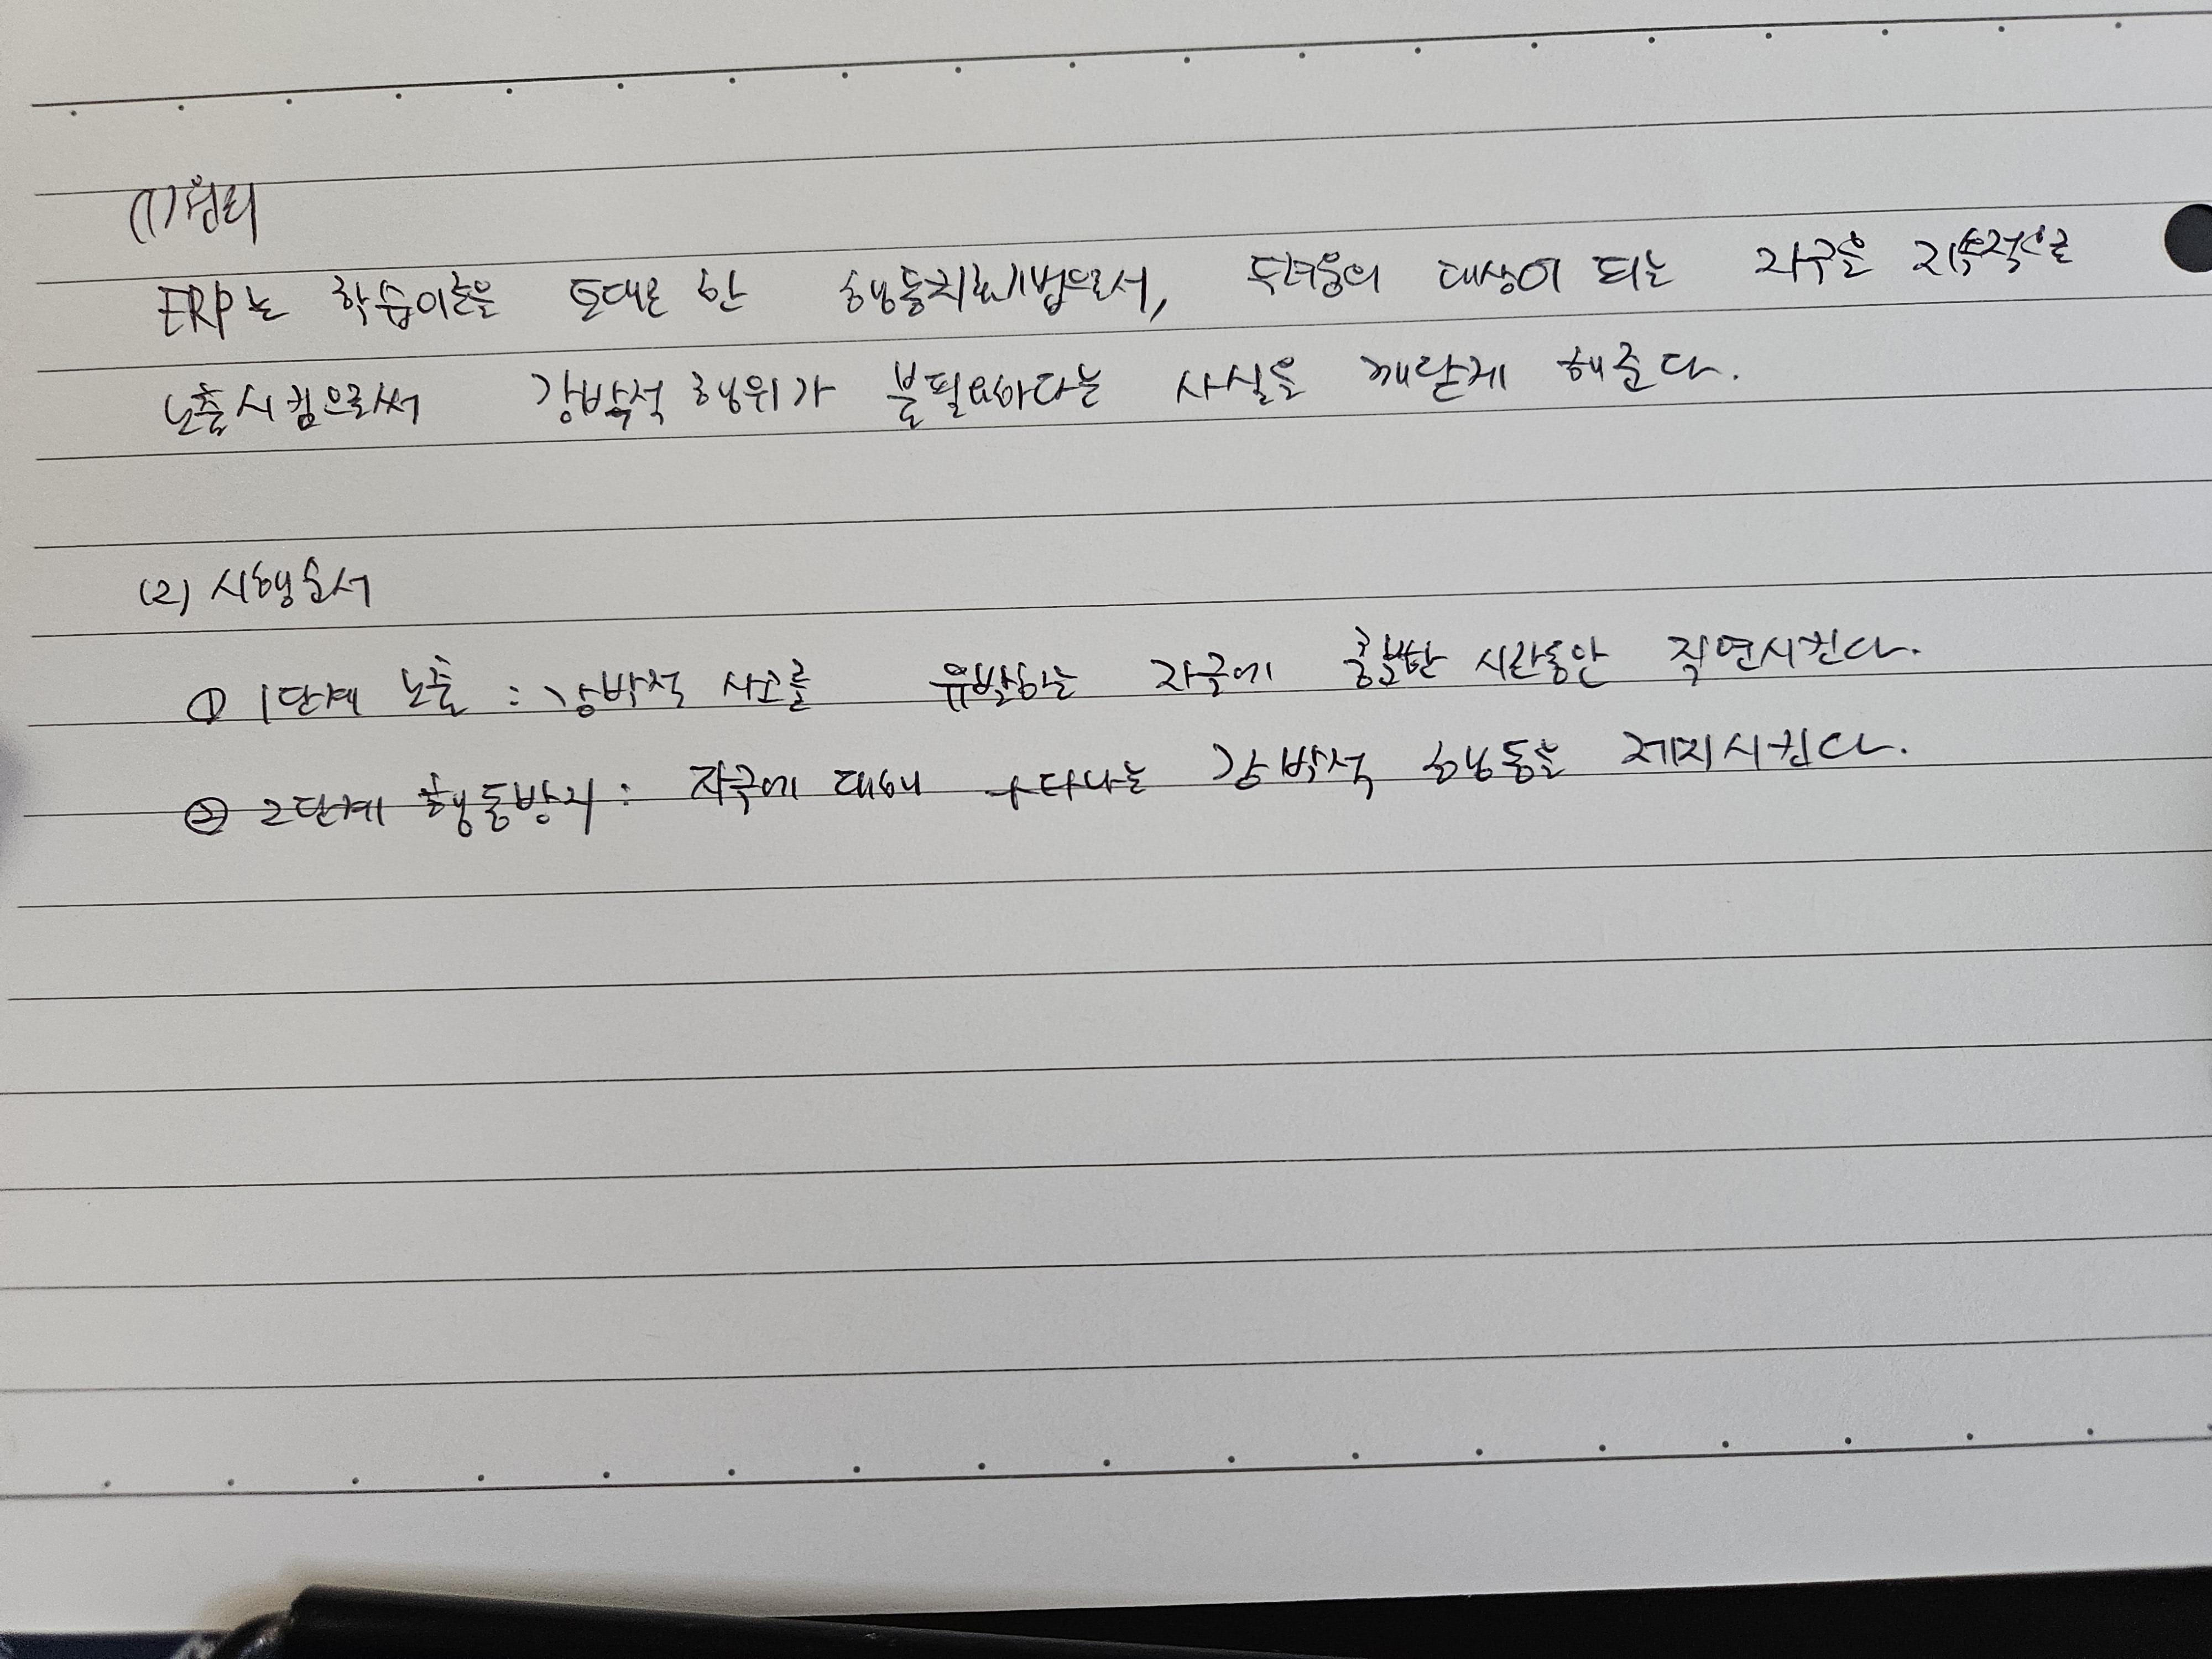 (1) 원리
ERP는 학습이론을 토대로 한 행동치료기법으로서, 두려움의 대상이 되는 자극을 지속적으로
노출시킴으로써 강박적 행위가 불필요하다는 사실을 깨닫게 해준다.
(2) 시행순서
① 1단계 노출 : 강박적 사고를 유발하는 자극에 충분한 시간동안 직면시킨다.
② 2단계 행동방지 : 자극에 대해 나타나는 강박적 행동을 제지시킨다.